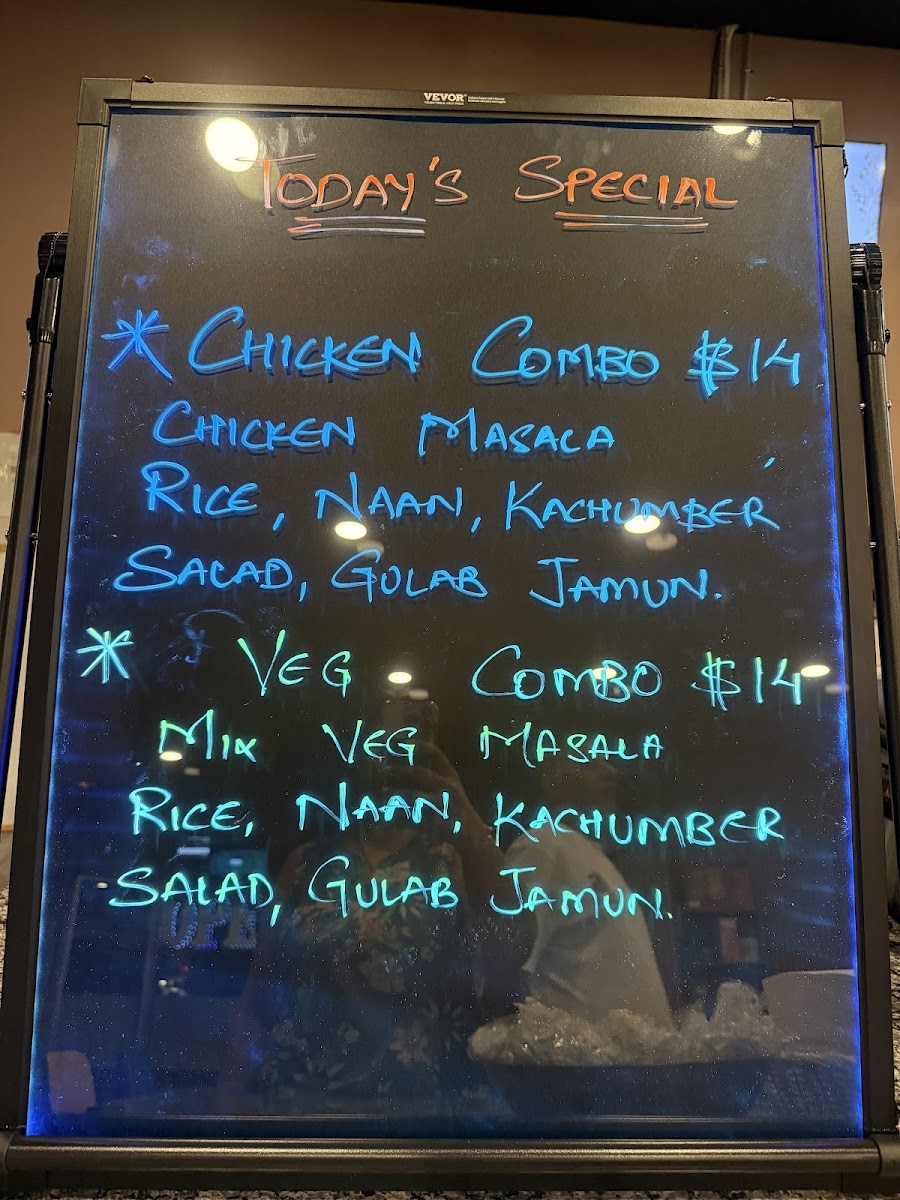 VEVOR
TODAY'S SPECIAL
* CHICKEN COMBO $14
CHICKEN MASALA
RICE, NAAN, KACHUMBER
SALAD, GULAB JAMUN.
* VEG COMBO $14
MIX VEG MASALA
RICE, NAAN, KACHUMBER
SALAD, GULAB JAMUN.